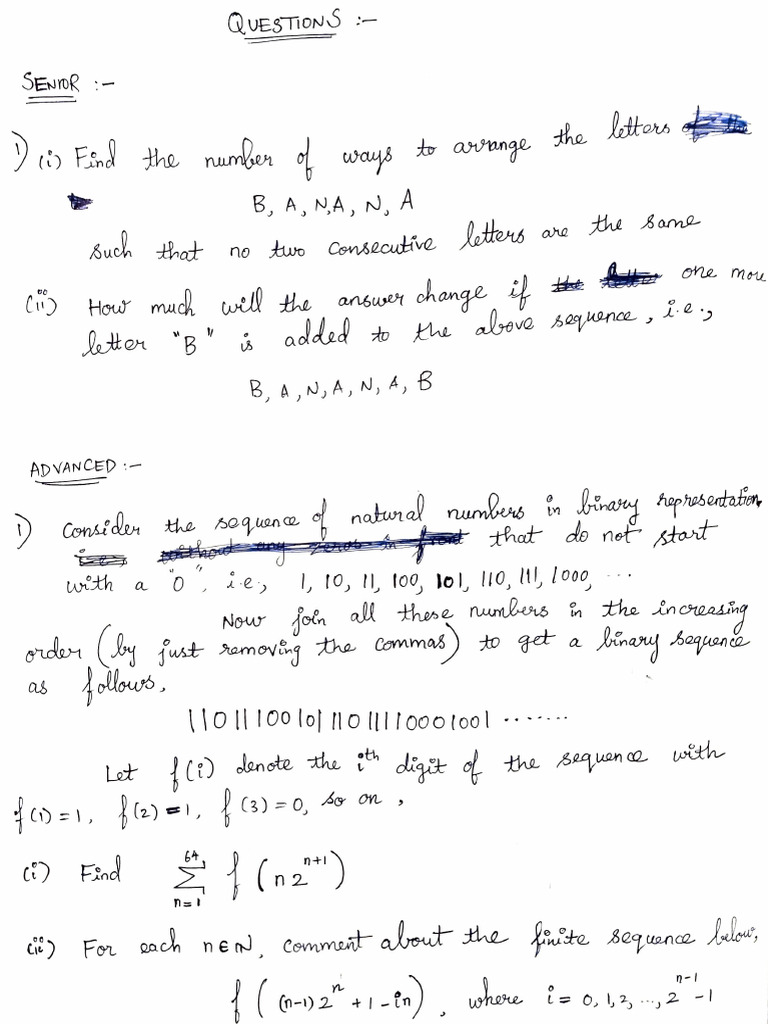 QUESTIONS :-
SENIOR :-
1) (i) Find the number of ways to arrange the letters
B, A, N, A, N, A
such that no two consecutive letters are the same
(ii) How much will the answer change if one more
letter "B" is added to the above sequence, i.e.,
B, A, N, A, N, A, B
ADVANCED :-
1) Consider the sequence of natural numbers in binary representation
that do not start
with a "0", i.e., 1, 10, 11, 100, 101, 110, 111, 1000, ...
Now join all these numbers in the increasing
order (by just removing the commas) to get a binary sequence
as follows,
11011100101110111110001001 .......
Let f(i) denote the i^th digit of the sequence with
f(1) = 1, f(2) = 1, f(3) = 0, so on,
(i) Find ∑_{n=1}^{64} f(n2^{n+1})
(ii) For each n∈N, comment about the finite sequence below,
f((n-1)2^n + 1 - in), where i = 0, 1, 2, ..., 2^{n-1} - 1